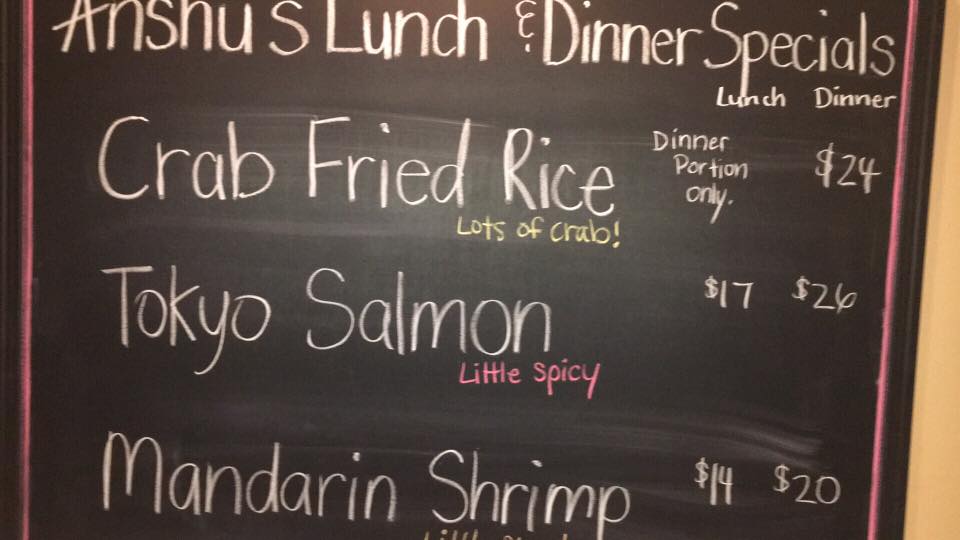 Anshu's Lunch & Dinner Specials
Lunch Dinner
Crab Fried Rice Dinner Portion only. $24
Lots of crab!
Tokyo Salmon $17 $26
Little Spicy
Mandarin Shrimp $14 $20